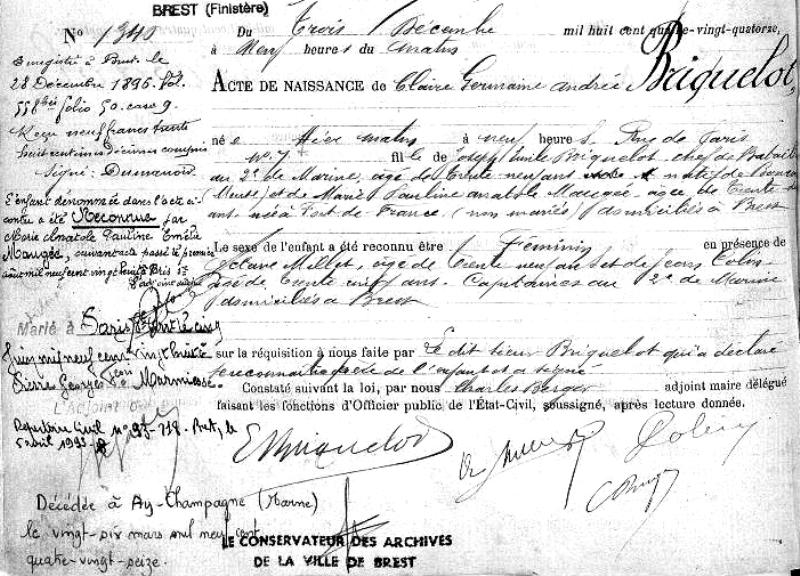 BREST (Finistère)
No 1340
Du Trois Décembre mil huit cent quatre-vingt-quatorze,
à Neuf heures du matin
ACTE DE NAISSANCE de Claire Germaine Andrée Briquelot,
née Hier matin à neuf heures, Rue de Paris
No 7 fille de Joseph Emile Briquelot, chef de Bataillon
au 2e de Marine, âgé de Trente neuf ans natif de
(Meuse) et de Marie Pauline Anatole Maugée, âgée de Trente
ans née à Fort de France (non mariés) domiciliés à Brest
Le sexe de l'enfant a été reconnu être Féminin en présence de
Octave Millet, âgé de Trente neuf ans et de Jean Colin
âgé de Trente cinq ans. Capitaines au 2e de Marine
domiciliés à Brest
sur la réquisition à nous faite par Le dit sieur Briquelot qui a déclaré
se reconnaître père de l'enfant et a signé
Constaté suivant la loi, par nous Charles Berger adjoint maire délégué
faisant les fonctions d'Officier public de l'État-Civil, soussigné, après lecture donnée.
EBriquelot
Enregistré à Brest le
28 Décembre 1896. Vol.
558bis folio 50. case 9.
Reçu neuf francs trente
huit centimes décimes compris
Signé: Desmanoir.
L'enfant dénommée dans l'acte ci-
contre a été Reconnue par
Marie Anatole Pauline Emélie
Maugée, suivant acte passé le premier
août mil neuf cent vingt huit à Paris
L'adjoint
Marié à Paris le cinq
Juin mil neuf cent vingt huit
Pierre Georges Marmiesse.
L'Adjoint
Répertoire Civil no 93-718. Brest, le
5 avril 1993.
Décédée à Ay-Champagne (Marne)
le vingt-six mars mil neuf cent
quatre-vingt-seize.
LE CONSERVATEUR DES ARCHIVES
DE LA VILLE DE BREST